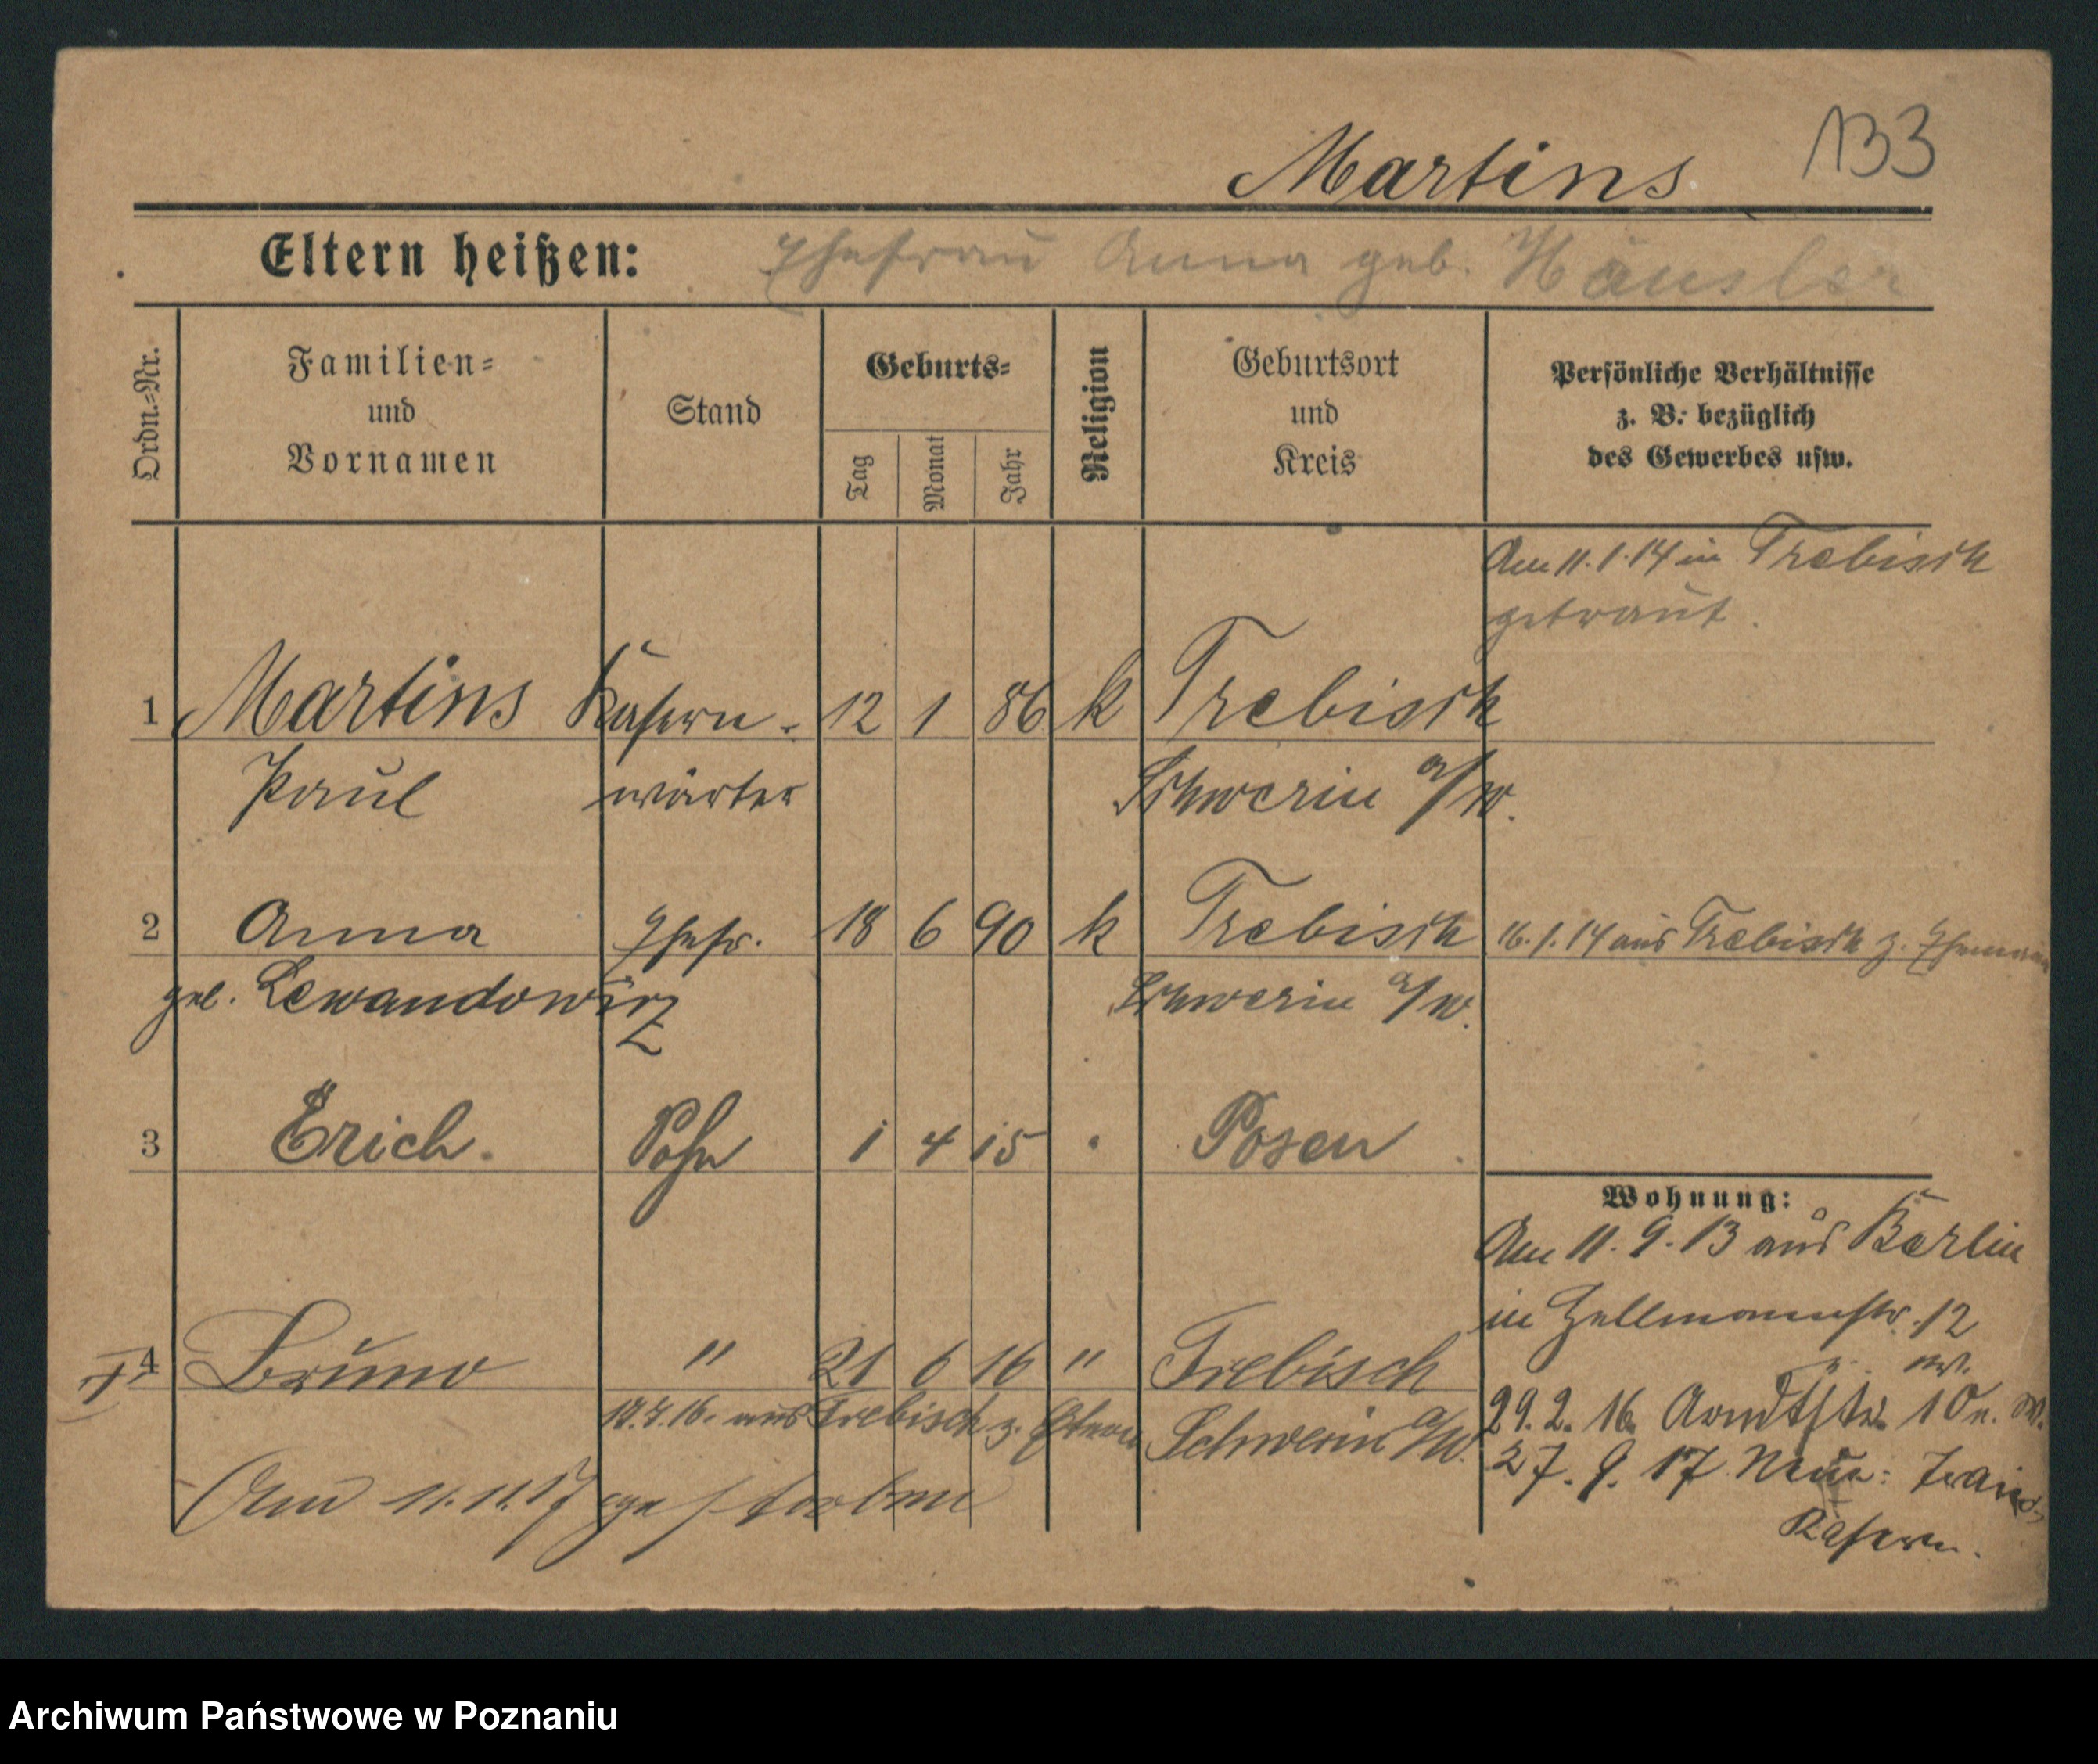 133
Martins
Eltern heißen: Ehefrau Anna geb. Häusler
Ordn.-Nr.
Familien- und Vornamen
Stand
Geburts-
Tag
Monat
Jahr
Religion
Geburtsort und Kreis
Persönliche Verhältnisse
z. B. bezüglich
des Gewerbes usw.
Am 11.1.14 in Trebisch
getraut.
1 Martins Kasern- 12 1 86 k Trebisch
Paul wärter Schwerin a/W.
2 Anna Ehefr. 18 6 90 k Trebisch 16.1.14 aus Trebisch z. Ehemann
geb. Schwerin a/W.
3 Erich. Sohn 1 4 15 Posen
Wohnung:
Am 11.9.13 aus Berlin
in 12
4 Bruno " 21 6 16 " Trebisch
aus Trebisch z. Schwerin a/W.
29.2.16 Arndtstr.
27.9.17 Neue: Train-
Kasern.
Am 11.11.17 gestorben
Archiwum Państwowe w Poznaniu